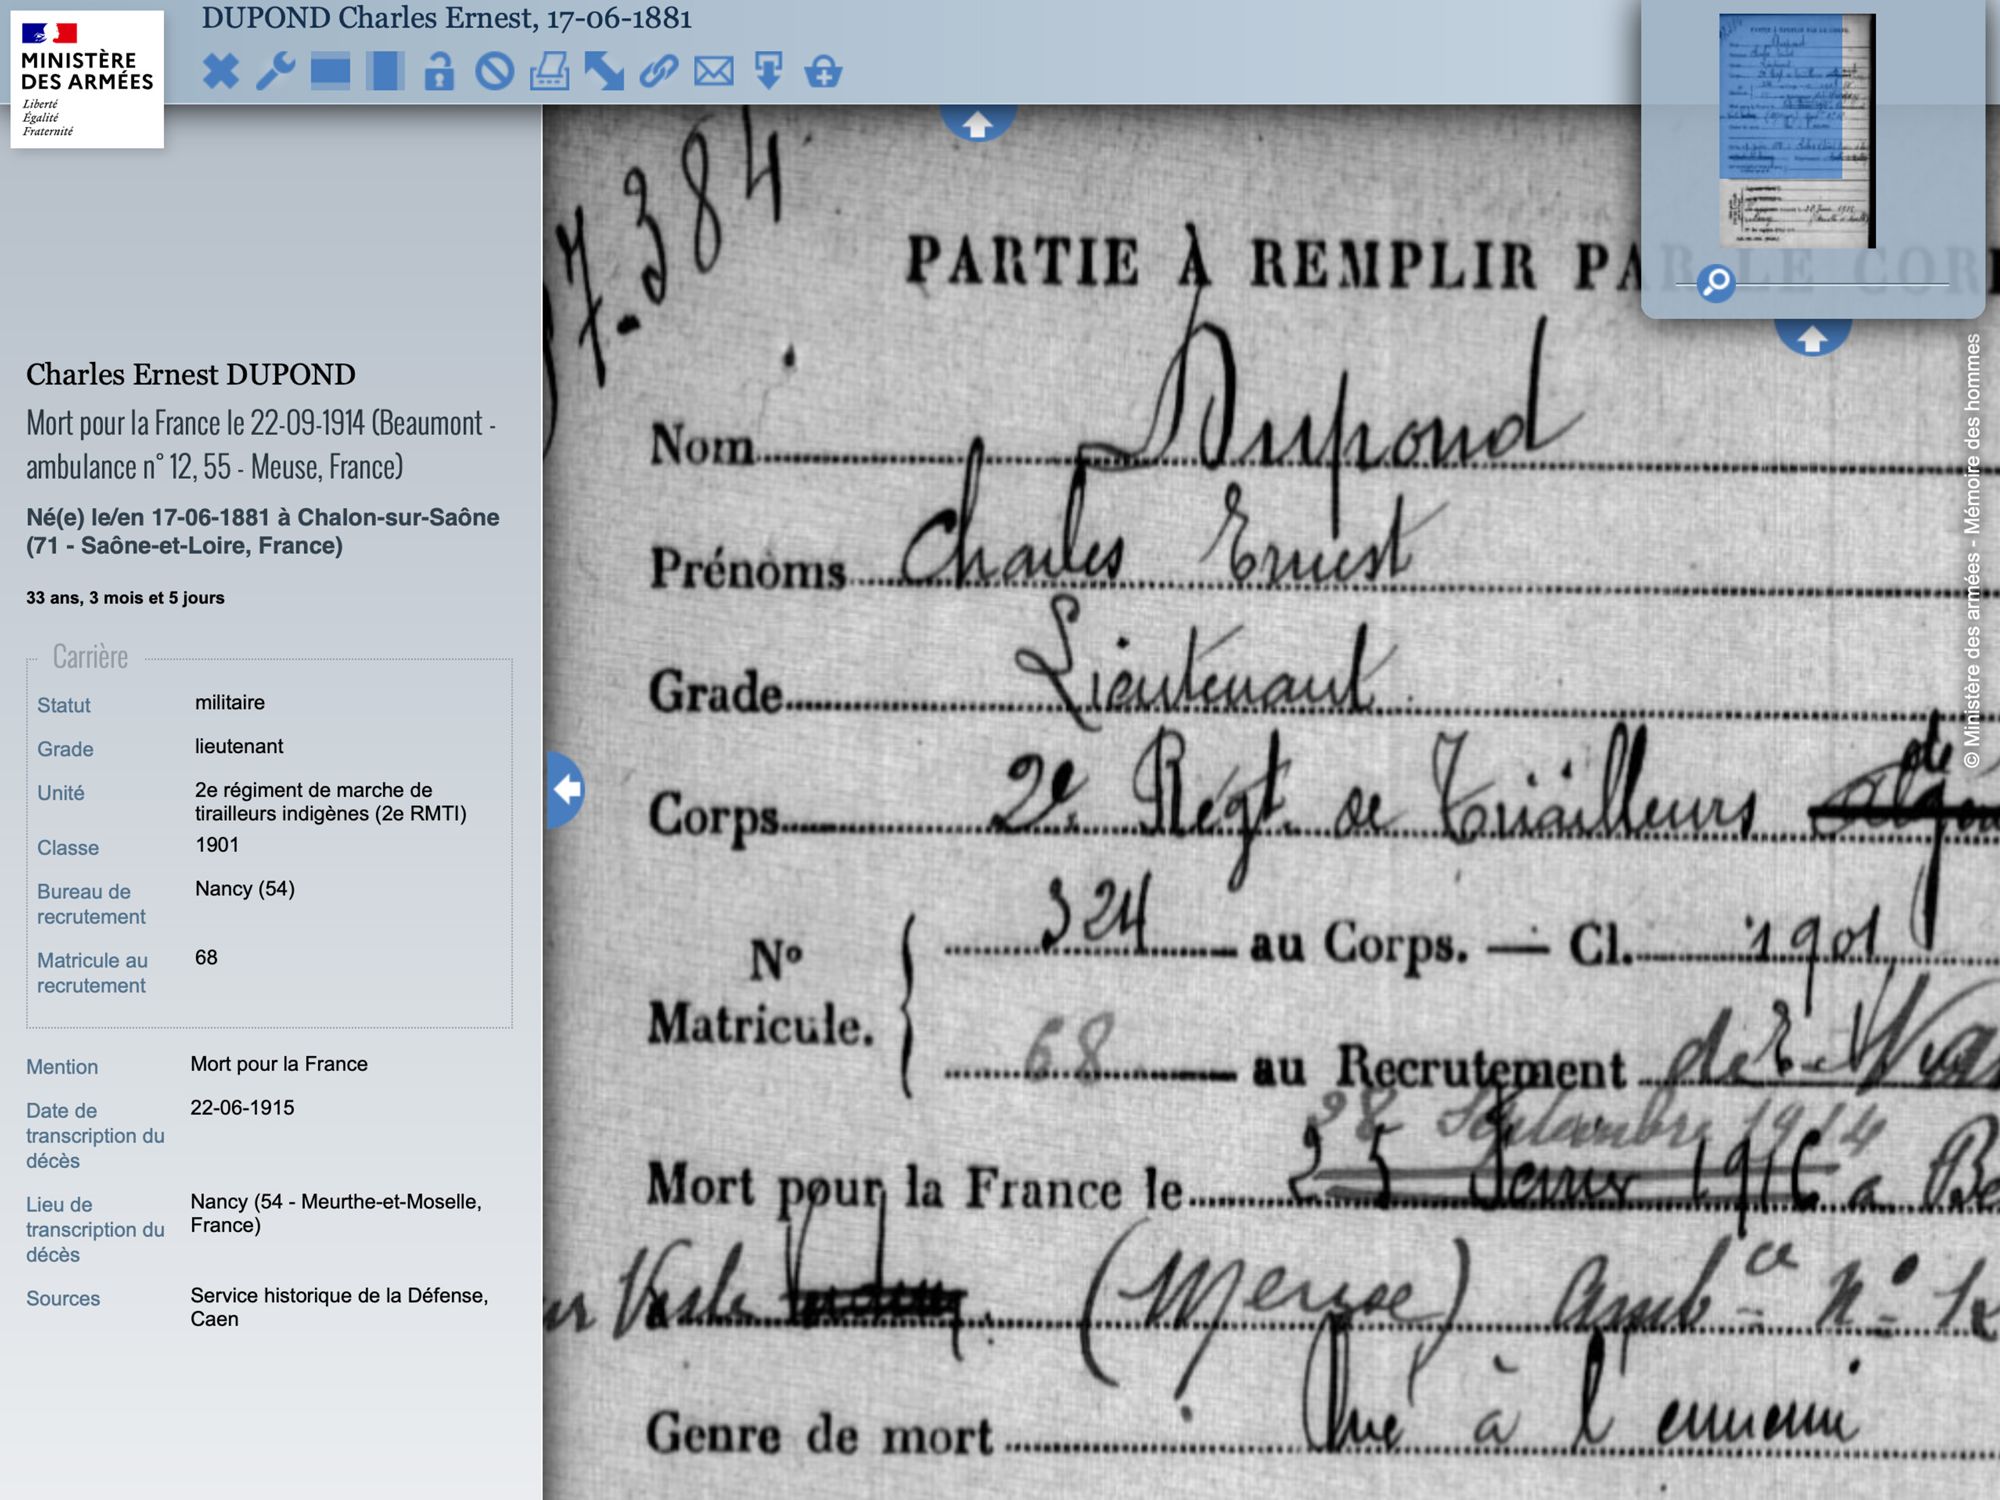 DUPOND Charles Ernest, 17-06-1881
MINISTÈRE
DES ARMÉES
Liberté
Égalité
Fraternité
Charles Ernest DUPOND
Mort pour la France le 22-09-1914 (Beaumont -
ambulance n° 12, 55 - Meuse, France)
Né(e) le/en 17-06-1881 à Chalon-sur-Saône
(71 - Saône-et-Loire, France)
33 ans, 3 mois et 5 jours
Carrière
Statut militaire
Grade lieutenant
Unité 2e régiment de marche de
tirailleurs indigènes (2e RMTI)
Classe 1901
Bureau de Nancy (54)
recrutement
Matricule au 68
recrutement
Mention Mort pour la France
Date de 22-06-1915
transcription du
décès
Lieu de Nancy (54 - Meurthe-et-Moselle,
transcription du France)
décès
Sources Service historique de la Défense,
Caen
7.384
PARTIE À REMPLIR PAR LE COR
Nom Dupond
Prénoms Charles Ernest
Grade Lieutenant
Corps 2e Régt. de Tirailleurs
de
N° 324 au Corps. — Cl. 1901
Matricule. 68 au Recrutement de
Septembre 1914
Mort pour la France le 25 1916 a Be
(Meuse) Ambce N°
Genre de mort Tué à l'ennemi
© Ministère des armées - Mémoire des hommes